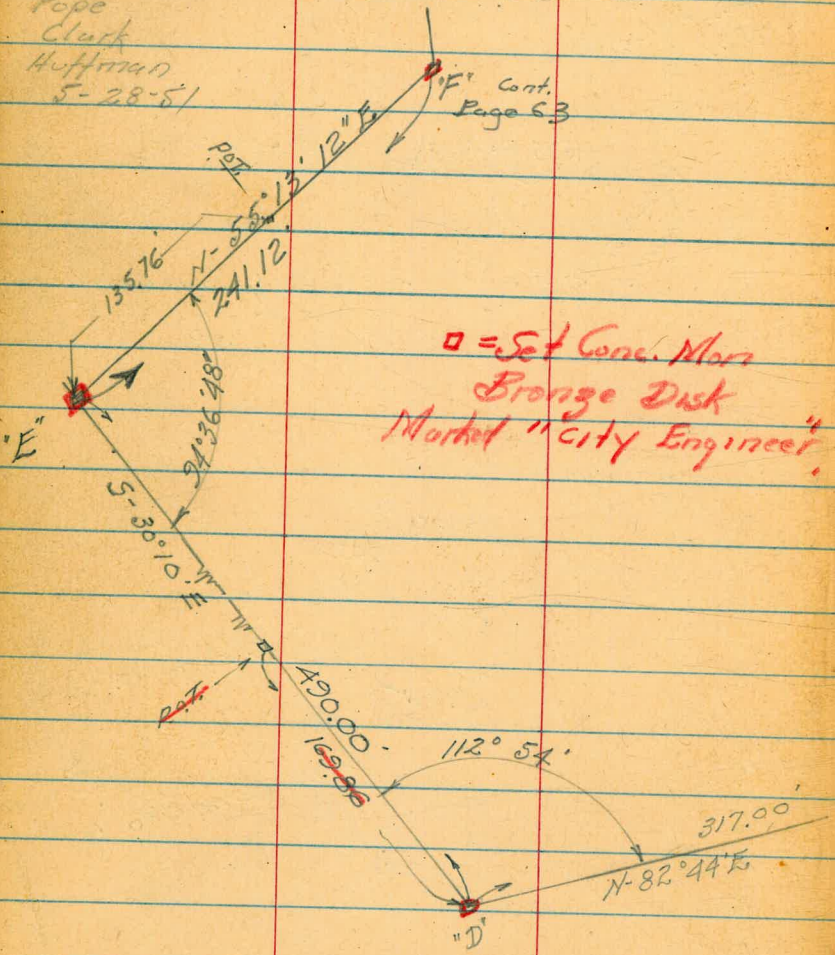 Pope
Clark
Huffman
5-28-51
"F" Cont.
Page 63
P.O.T.
N-55°13'12"E
241.12'
135.76'
"E"
94°36'48"
S-30°10'E
□ = Set Conc. Mon
Bronze Disk
Marked "City Engineer".
P.O.T.
490.00'
169.86
112° 54'
317.00'
N-82°44'E
"D"